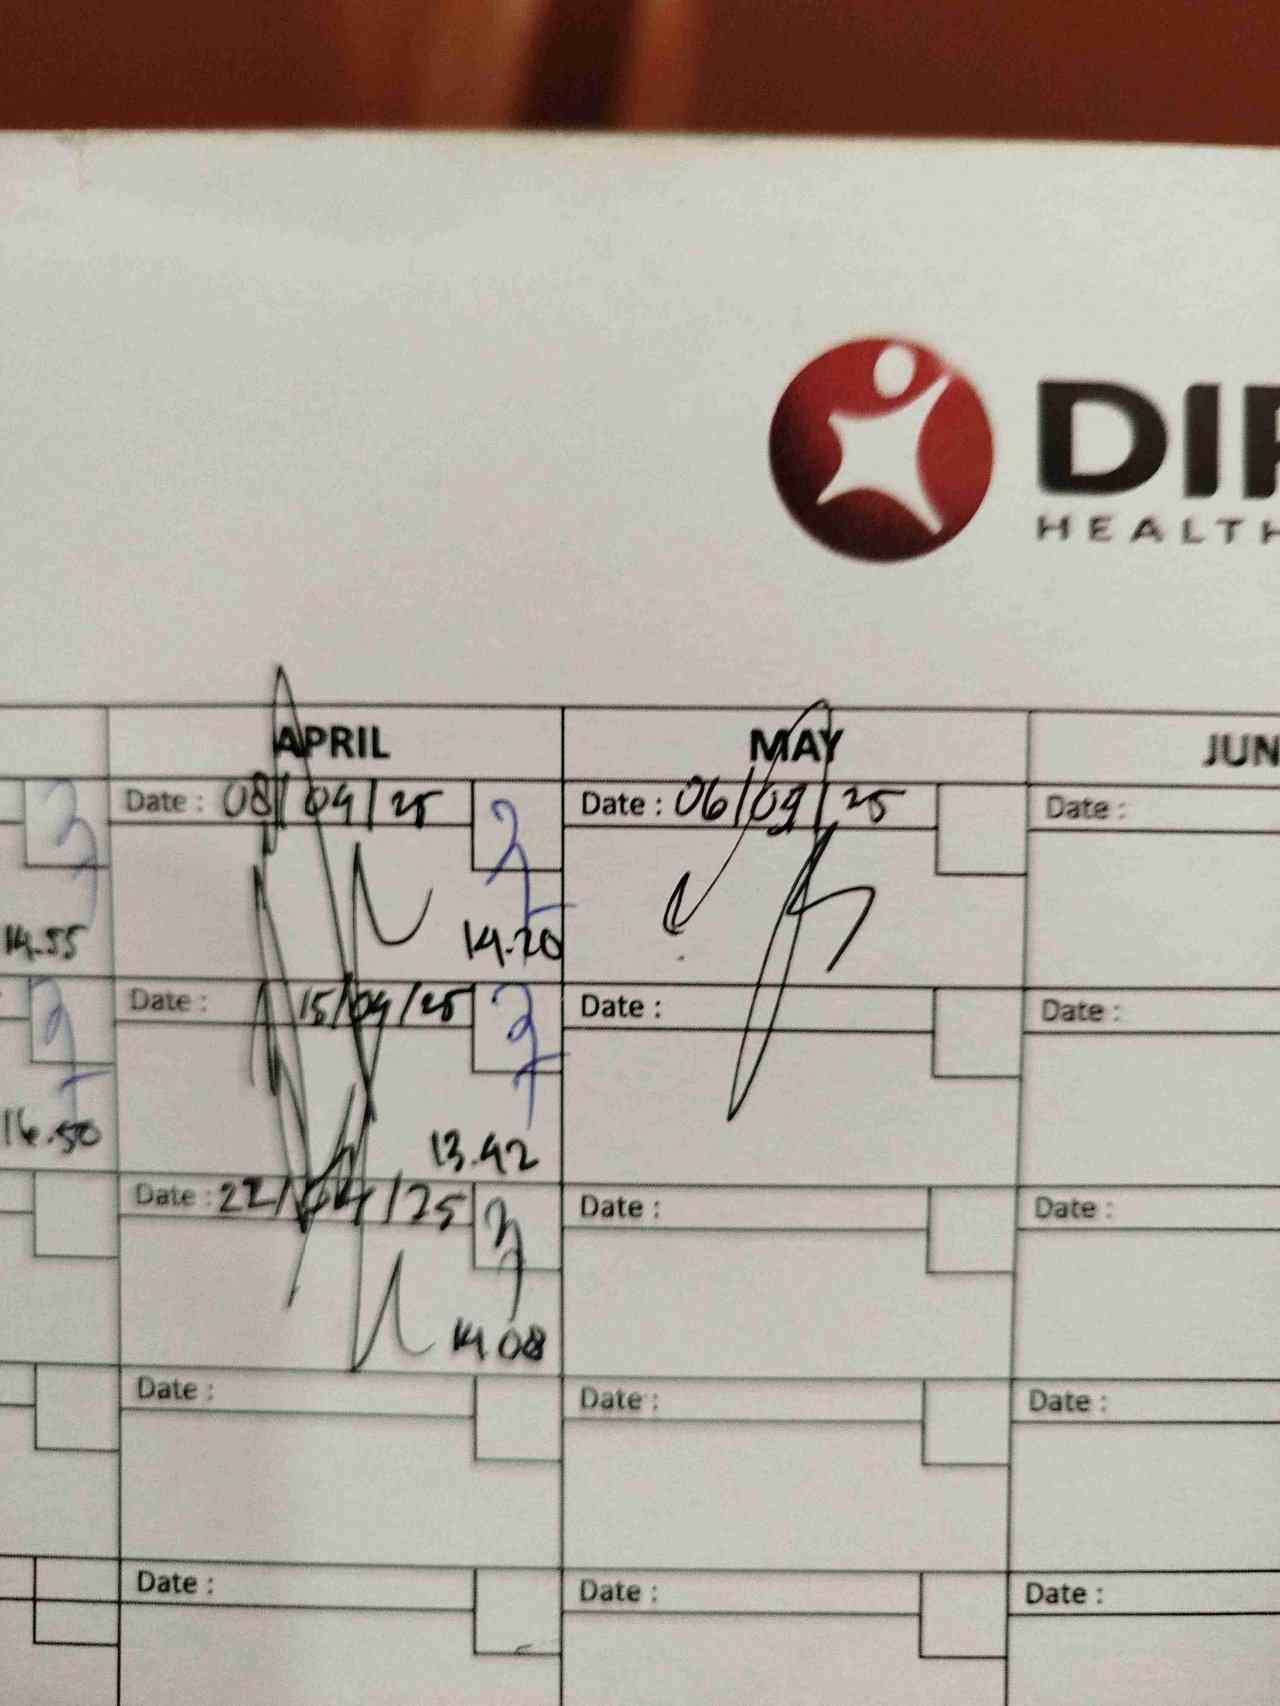 DI
HEALTH
APRIL MAY JUN
Date : 08/04/25 Date : 06/09/25 Date :
14.55 14.20
Date : 15/04/25 Date : Date :
16.50 13.42
Date : 22/04/25 Date : Date :
14.08
Date : Date : Date :
Date : Date : Date :